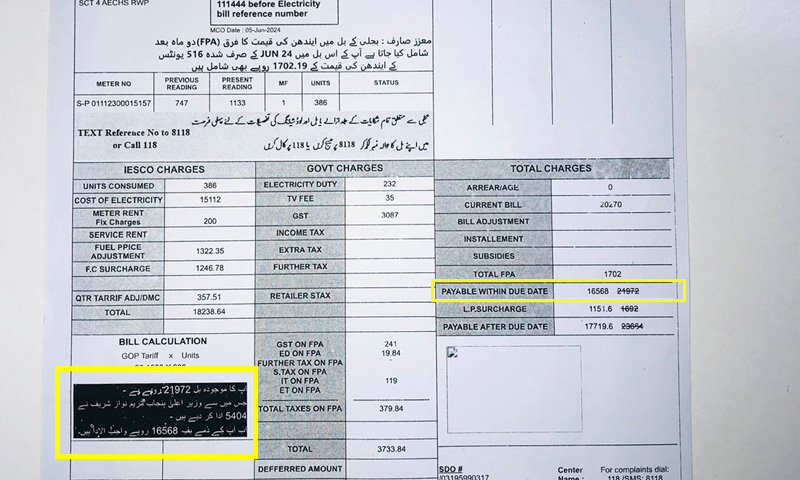 SCT 4 AECHS RWP
111444 before Electricity
bill reference number
MCO Date : 05-Jun-2024
معزز صارف : بجلی کے بل میں ایندھن کی قیمت کا فرق (FPA) دو ماہ بعد
شامل کیا جاتا ہے آپ کے اس بل میں JUN 24 کے صرف شدہ 516 یونٹس
کے ایندھن کی قیمت کے 1702.19 روپے بھی شامل ہیں
METER NO PREVIOUS READING PRESENT READING MF UNITS STATUS
S-P 01112300015157 747 1133 1 386
TEXT Reference No to 8118
or Call 118
IESCO CHARGES
UNITS CONSUMED 386
COST OF ELECTRICITY 15112
METER RENT
Fix Charges 200
SERVICE RENT
FUEL PPICE
ADJUSTMENT 1322.35
F.C SURCHARGE 1246.78
QTR TARRIF ADJ/DMC 357.51
TOTAL 18238.64
BILL CALCULATION
GOP Tariff x Units
آپ کا موجودہ بل 21972 روپے ہے -
جس میں سے وزیر اعلیٰ پنجاب مریم نواز شریف نے
5404 ادا کر دیے ہیں -
اب آپ کے ذمے بقیہ 16568 روپے واجب الادا ہیں.
GOVT CHARGES
ELECTRICITY DUTY 232
TV FEE 35
GST 3087
INCOME TAX
EXTRA TAX
FURTHER TAX
RETAILER STAX
GST ON FPA 241
ED ON FPA 19.84
FURTHER TAX ON FPA
S.TAX ON FPA
IT ON FPA 119
ET ON FPA
TOTAL TAXES ON FPA 379.84
TOTAL 3733.84
DEFERRED AMOUNT
TOTAL CHARGES
ARREAR/AGE 0
CURRENT BILL 20270
BILL ADJUSTMENT
INSTALLEMENT
SUBSIDIES
TOTAL FPA 1702
PAYABLE WITHIN DUE DATE 16568 21972
L.P.SURCHARGE 1151.6 1692
PAYABLE AFTER DUE DATE 17719.6 23654
SDO #
/03195990317
Center
Name :
For complaints dial:
118 /SMS: 8118